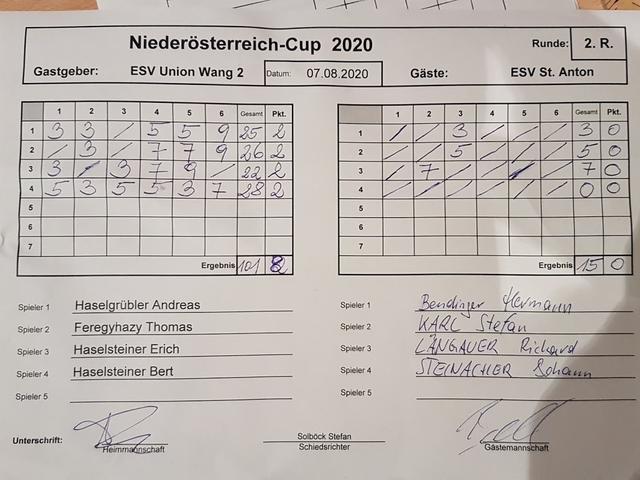 Niederösterreich-Cup 2020
Runde: 2. R.
Gastgeber: ESV Union Wang 2 Datum: 07.08.2020 Gäste: ESV St. Anton
1 2 3 4 5 6 Gesamt Pkt.
1 3 3 / 5 5 9 25 2
2 / 3 / 7 7 9 26 2
3 3 / 3 7 9 / 22 2
4 5 3 5 5 3 7 28 2
5
6
7
Ergebnis 101 8
1 2 3 4 5 6 Gesamt Pkt.
1 / / 3 / / / 3 0
2 / / 5 / / / 5 0
3 / 7 / / / / 7 0
4 / / / / / / 0 0
5
6
7
Ergebnis 15 0
Spieler 1 Haselgrübler Andreas
Spieler 2 Feregyhazy Thomas
Spieler 3 Haselsteiner Erich
Spieler 4 Haselsteiner Bert
Spieler 5
Spieler 1 Bendinger Hermann
Spieler 2 KARL Stefan
Spieler 3 LÄNGAUER Richard
Spieler 4 STEINACHER Johann
Spieler 5
Unterschrift:
Heimmannschaft
Solböck Stefan
Schiedsrichter
Gästemannschaft